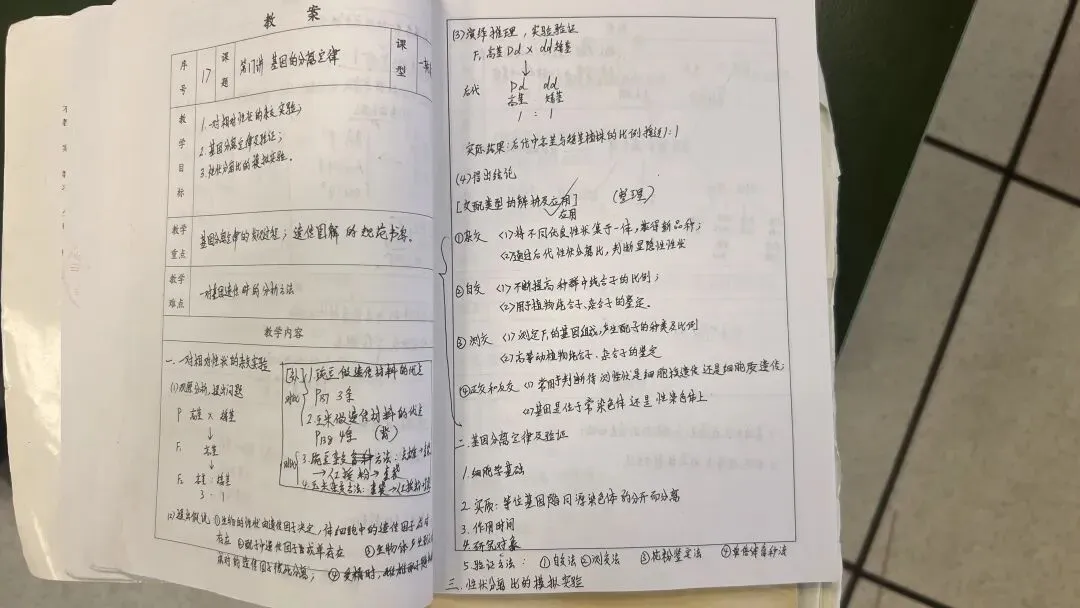 教 案
序号 17 课题 第17讲 基因的分离定律 课型
教学目标
1.一对相对性状的杂交实验;
2.基因分离定律及验证;
3.性状分离比的模拟实验。
教学重点 基因分离定律的 ;遗传图解的规范书写。
教学难点 一对基因遗传时的分析方法
教学内容
一.一对相对性状的杂交实验
(1)观察分析,提出问题
P 高茎 × 矮茎
↓
F₁ 高茎
↓
F₂ 高茎 : 矮茎
3 : 1
1.豌豆做遗传材料的优点
P127 3条
2.玉米做遗传材料的优点
P128 4条 (背)
3.豌豆杂交 方法:去雄→套袋
→人工授粉→套袋
4.玉米杂交方法:套袋→人工授粉→
(2)提出假说 ①生物的性状由遗传因子决定,体细胞中的遗传因子成对
存在 ②配子中遗传因子成单存在 ③生物体产生
成对的遗传因子彼此分离; ④受精时,
(3)演绎推理,实验验证
F₁高茎 Dd × dd矮茎
↓
后代 Dd dd
高茎 矮茎
1 : 1
实际结果:后代中高茎与矮茎植株的比例接近1:1
(4)得出结论
[交配类型的解析及应用] (整理)
应用
①杂交 <1>将不同优良性状集于一体,获得新品种;
<2>通过后代性状分离比,判断显隐性性状
②自交 <1>不断提高种群中纯合子的比例;
<2>用于植物纯合子、杂合子的鉴定。
③测交 <1>测定F₁的基因组成,产生配子的种类及比例
<2>高等动植物纯合子、杂合子的鉴定
④正交和反交 <1>常用于判断待测性状是细胞核遗传还是细胞质遗传;
<2>基因是位于常染色体还是性染色体上
二.基因分离定律及验证
1.细胞学基础
2.实质:等位基因随同源染色体的分开而分离
3.作用时间
4.研究对象
5.验证方法: ①自交法 ②测交法 ③花粉鉴定法 ④单倍体育种法
三.性状分离比的模拟实验